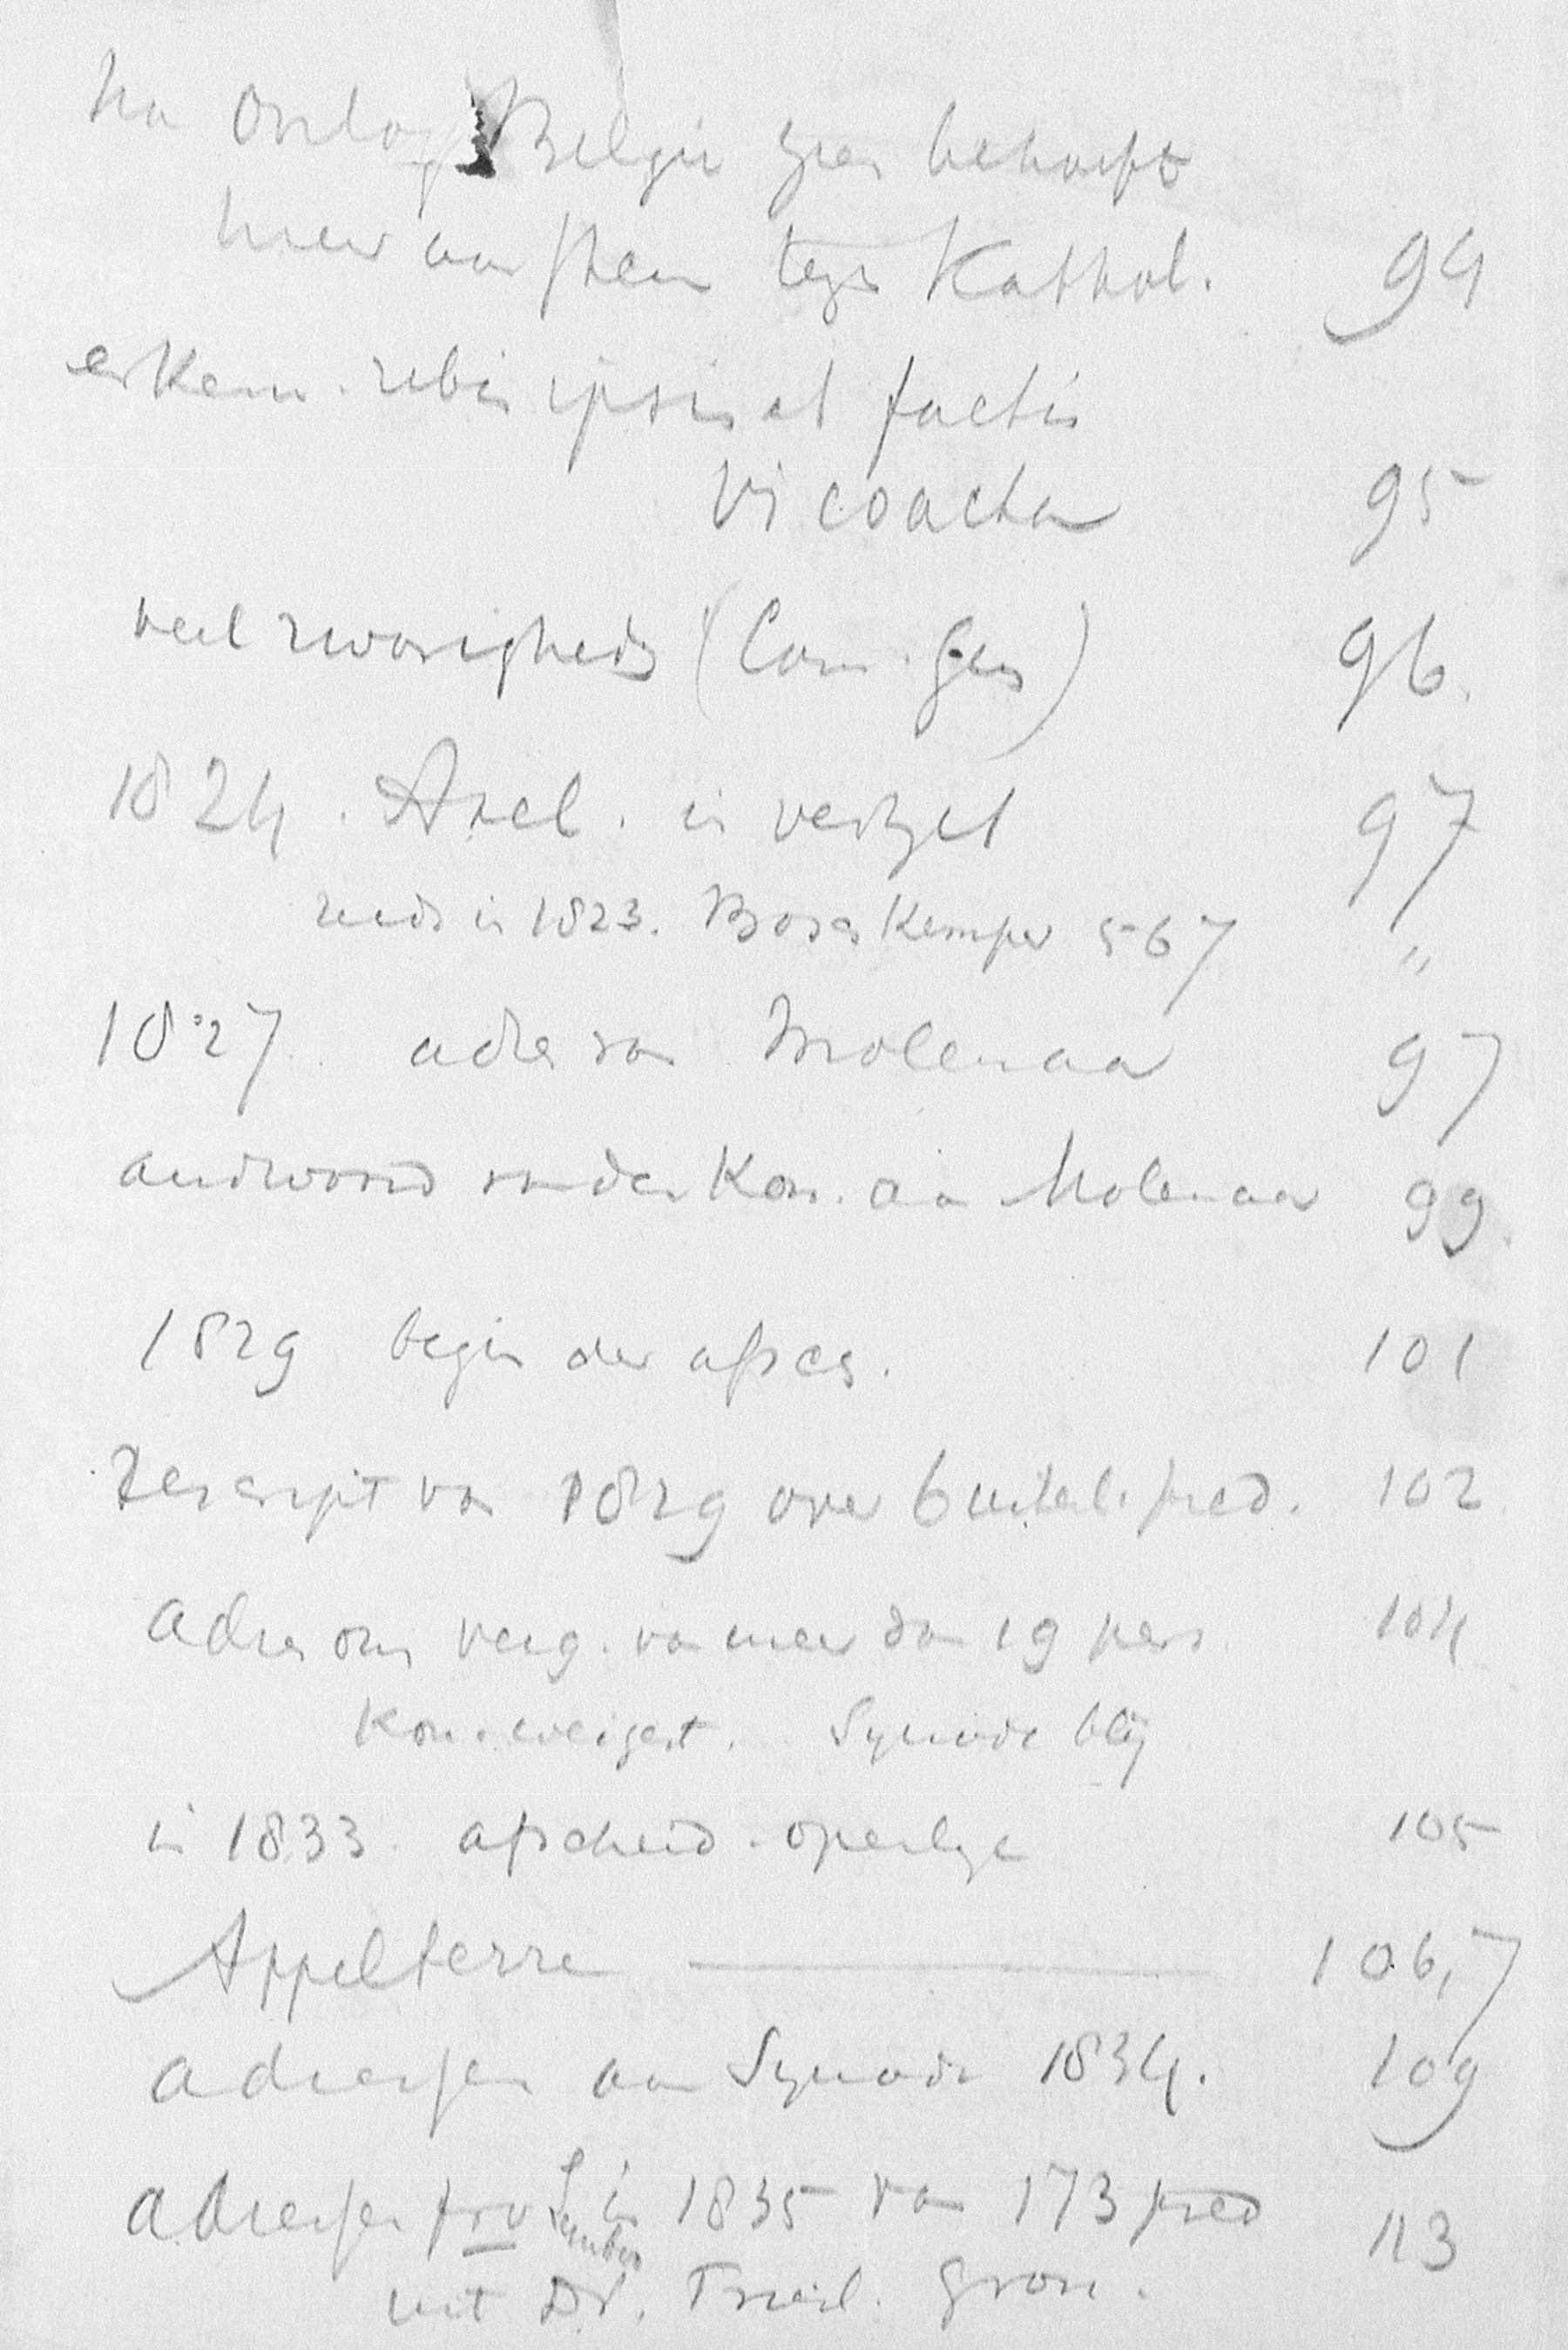 na Oorlog België geen behoefte
meer aan steun tegen Kathol. 94
erkenn. rebus ipsis et factis
vi coacta 95
veel zwarigheden (Com. Gen) 96.
1824. Axel. in verzet 97
reeds in 1823. Bosch Kemper 567 "
1827 adres van Molenaar 97
andwoord van den Kon. aan Molenaar 99.
1829 begin der afsch. 101
Rescript van 1829 over buitenl. pred. 102
Adres om verg. van meer dan 19 pers. 104
Kon. weigert. Synode blij
in 1833. afscheid. openlijk 105
Appelterre — 106,7
adressen aan Synode 1834. 109
adressen pro Symbo in 1835 van 173 pred 113
uit Dr. Friesl. Gron.